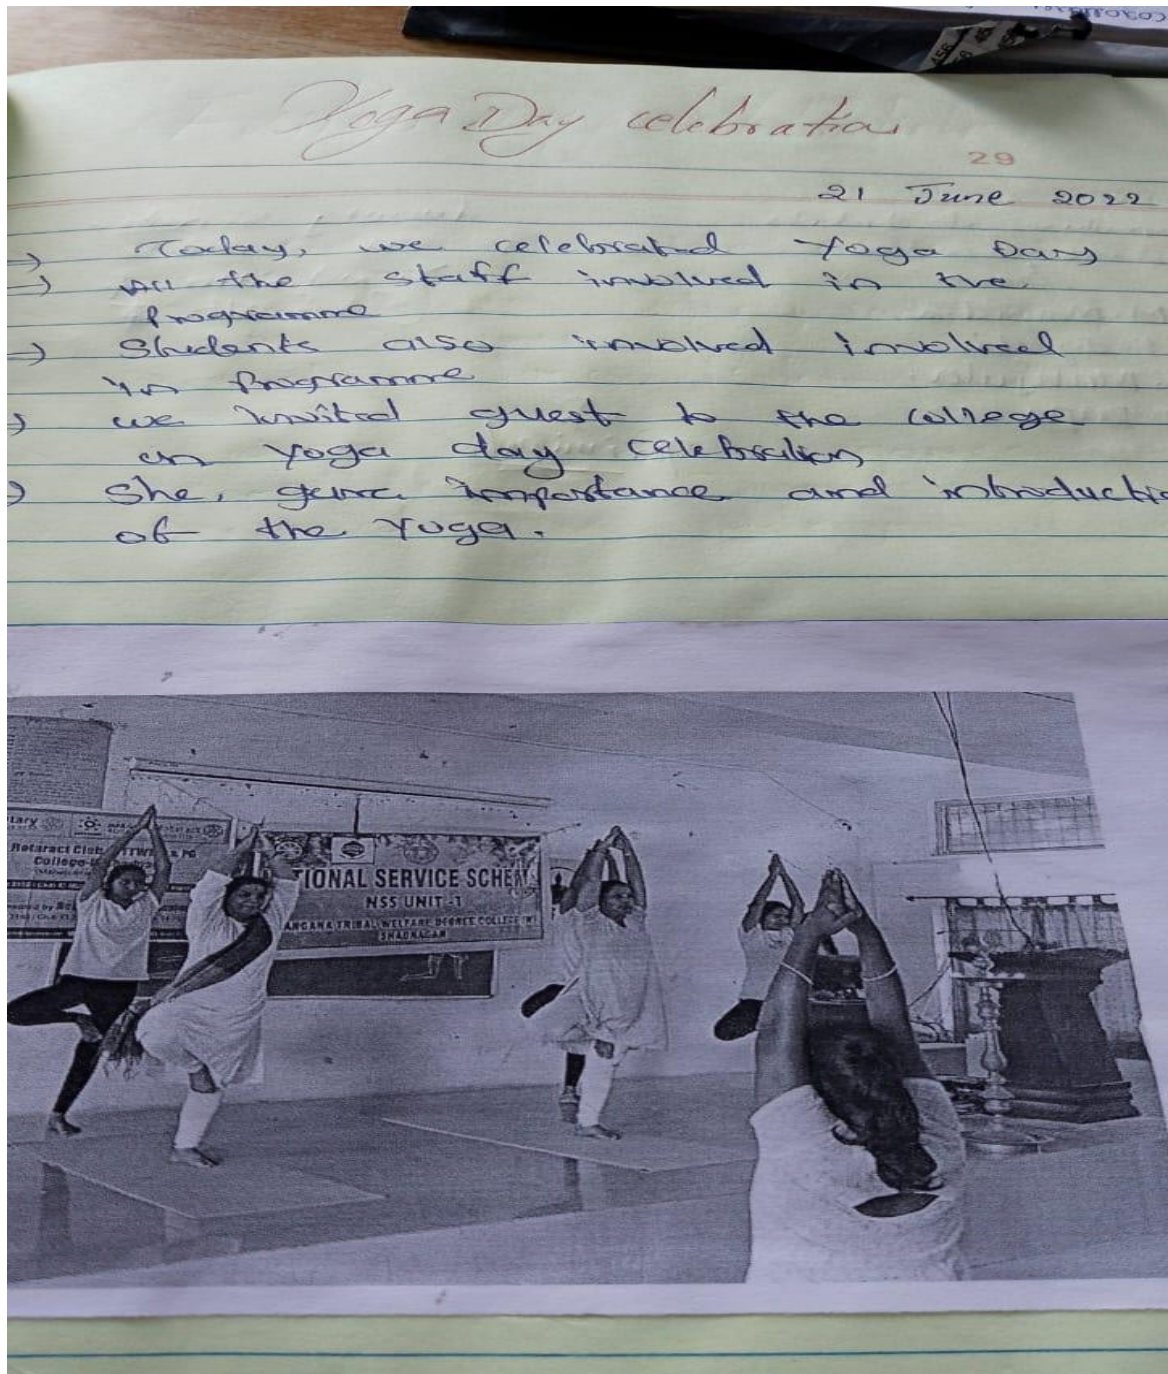 Yoga Day celebration
29
21 June 2022
→ Today, we celebrated Yoga Day
→ All the staff involved in the
Programme
→ Students also involved involved
in Programme
→ we invited guest to the college
on yoga day celebration
→ She, gave importance and introductio
of the Yoga.
tary
Rotaract Club
College
TIONAL SERVICE SCHEM
NSS UNIT -1
ANGANA TRIBAL WELFARE DEGREE COLLEGE (W)
SHADNAGAR